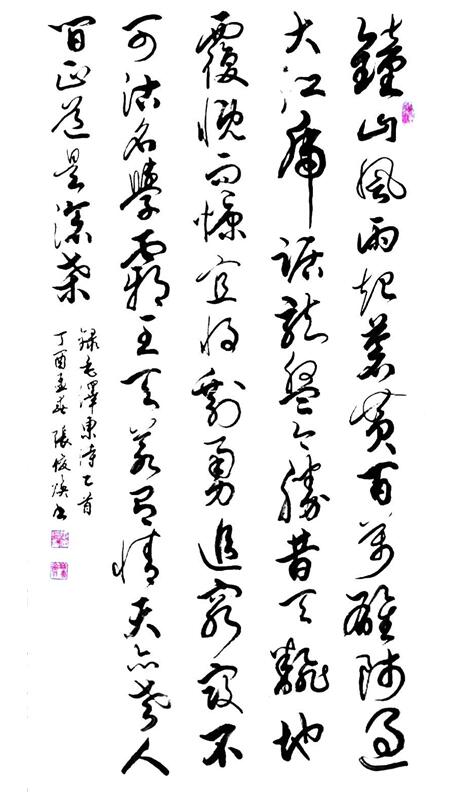 鐘山風雨起蒼黃百萬雄師過
大江虎踞龍盤今勝昔天翻地
覆慨而慷宜將剩勇追窮寇不
可沽名學霸王天若有情天亦老人
間正道是滄桑
録毛澤東詩乙首
丁酉孟春張俊煥书